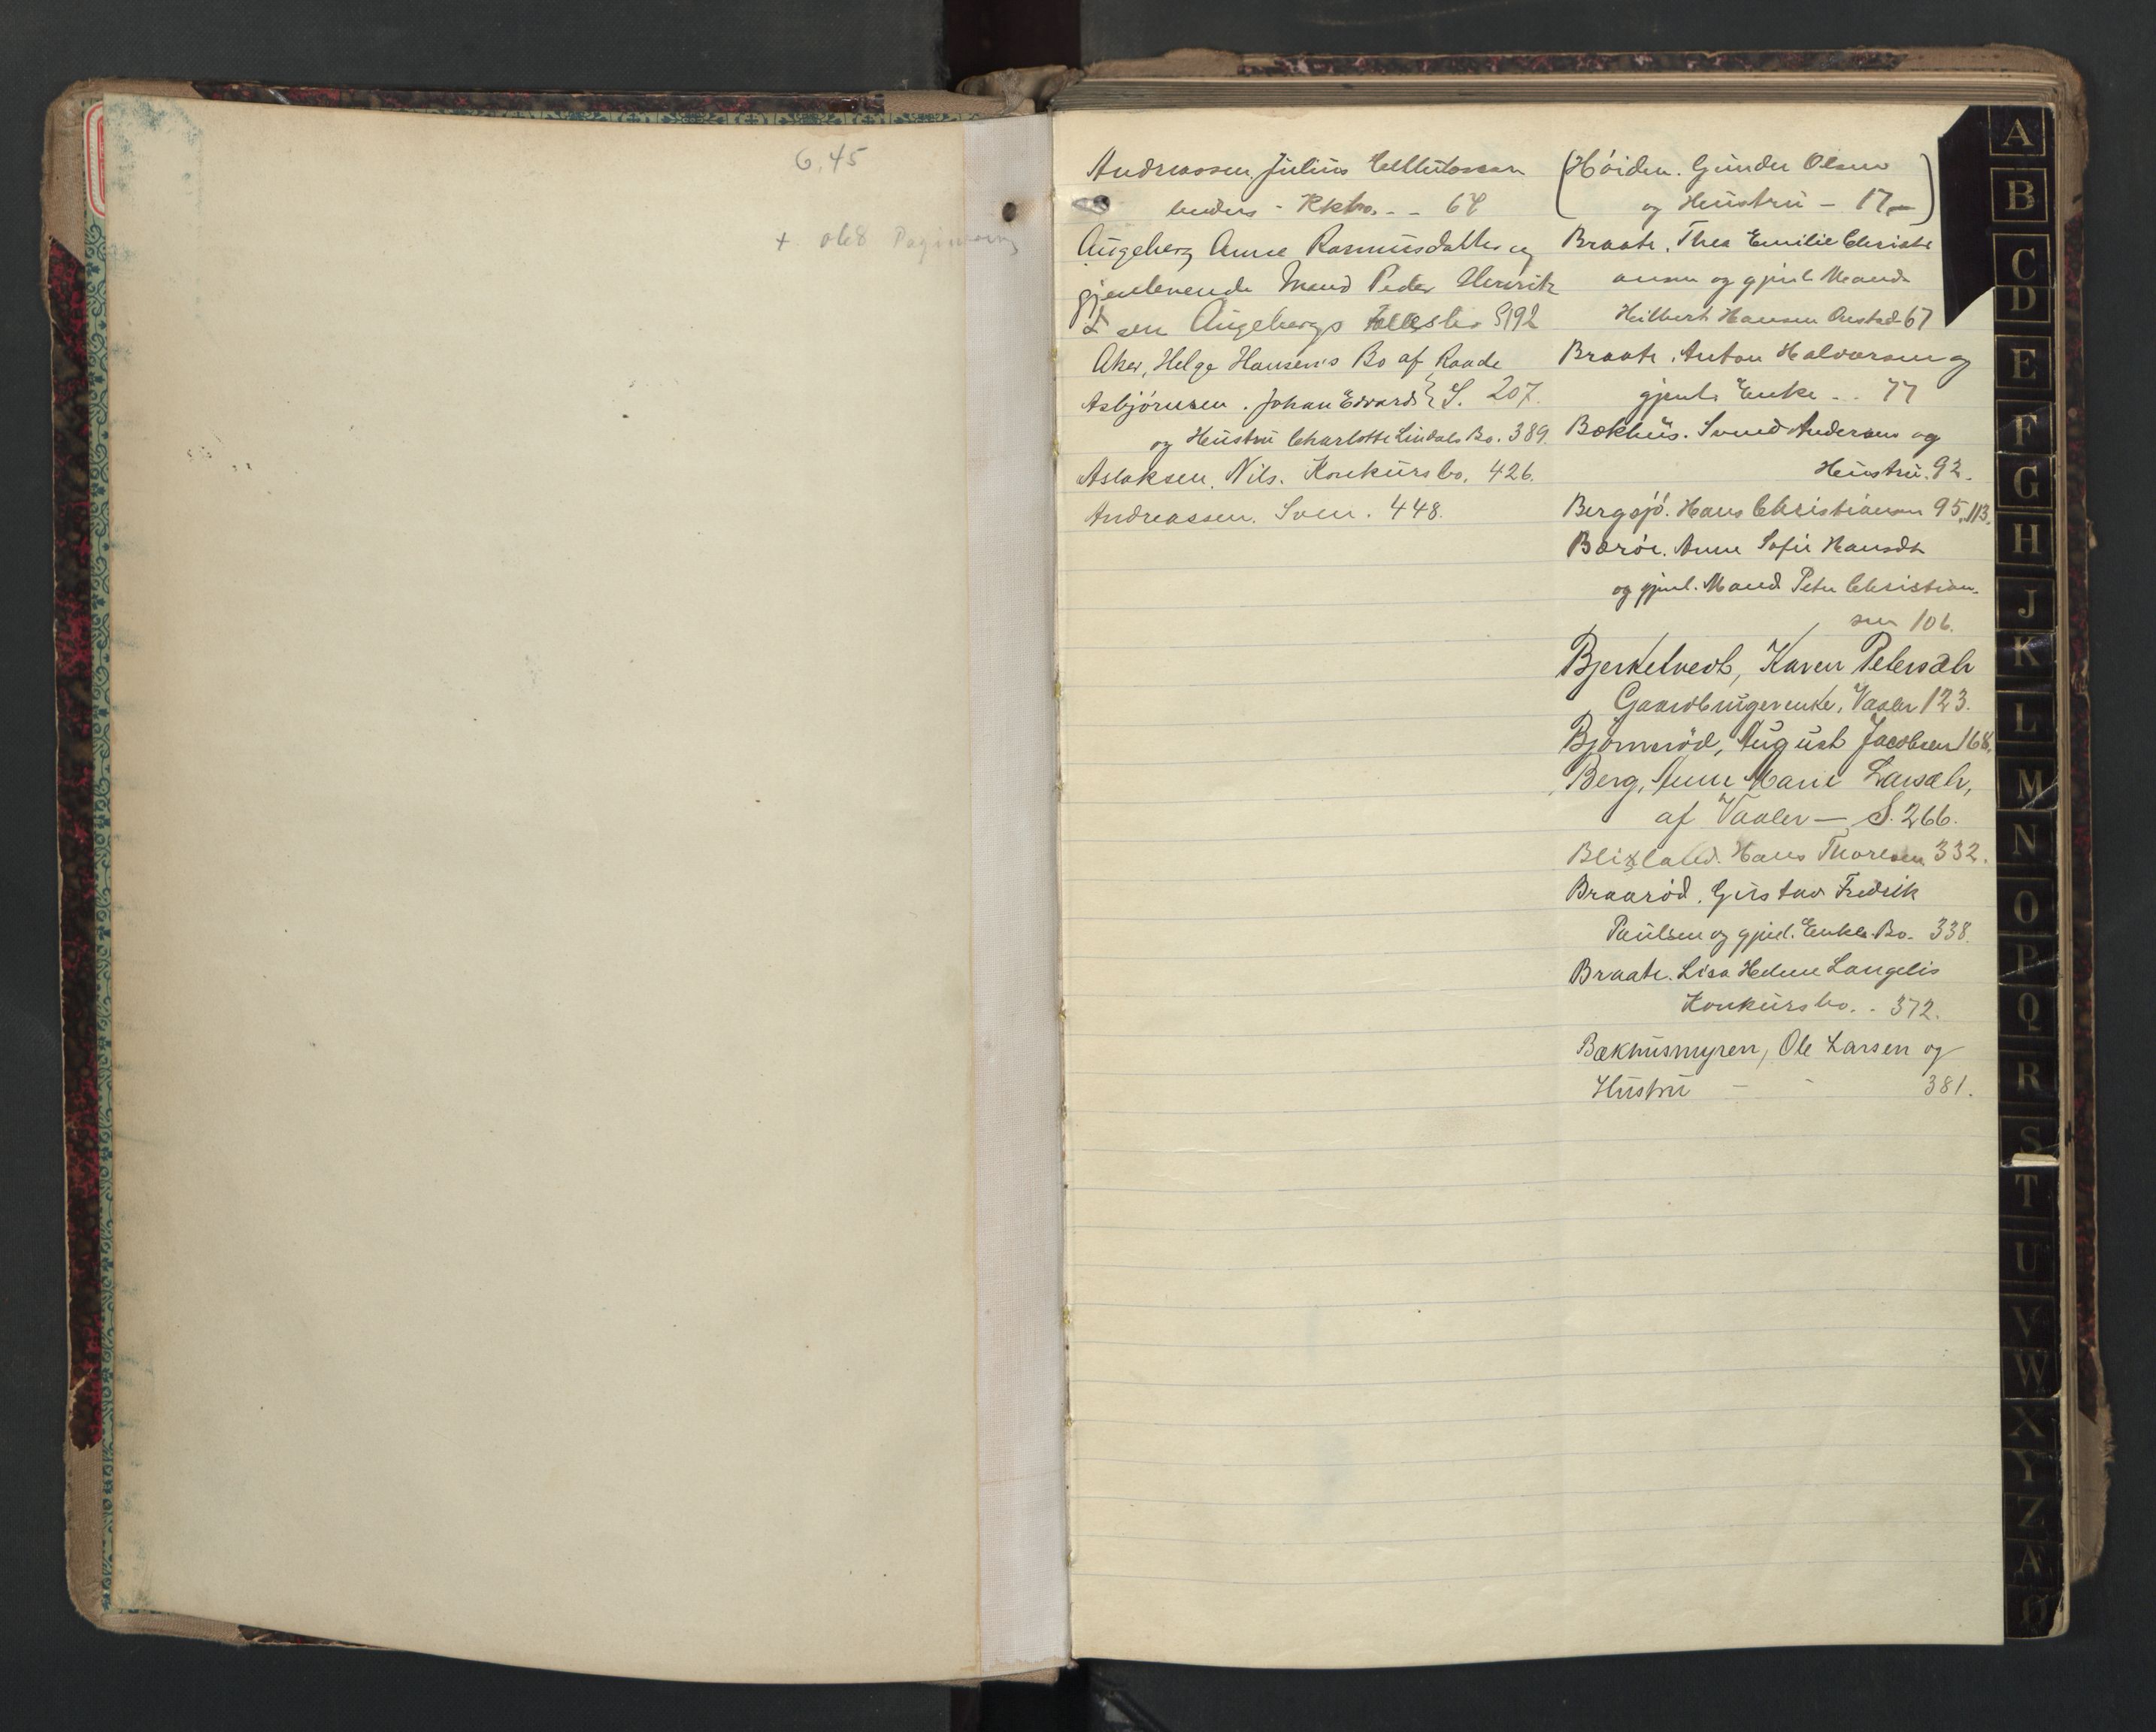 6,45
+ Paginering
Andreassen, Julius
- Kkbo. - - 64
Augeberg Anne Rasmusdatter og
gjenlevende Mand Peder Henrik
sen Augebergs S192
Aker, Helge Hansen's Bo af Raade
S. 207.
Asbjørnsen. Johan Edvard
og Hüstrü Charlotte Lindals Bo. 389.
Aslaksen, Nils. Konkürsbo. 426.
Andreassen. Sven. 448.
(Høiden. Günder Olsen
og Hüstrü - 17 -)
Braate. Thea Emilie Christi
ansen og gjenl. Mand
Hansen 67
Braate. Anton Halvorsen og
gjenl. Enke - . 77
Bækhüs. Svend Andersens og
Hüstrü. 92.
Bergsjø. Hans Christiansen 95, 113.
Barøe. Anne Sofie Hansdtr
og gjenl. Mand Peter Christian-
sen 106.
Bjerketvedt, Karen Petersdtr
Gaardbrügerenke, Vaaler 123.
Bjørnerød, Aügüst Jacobsen 168.
Berg, Anne Marie Larsdtr,
af Vaaler — S. 266.
Blixland. Hans Thoresen 332.
Braarød. Güstav Fredrik
Paülsen og gjenl. Enkes Bo. 338.
Braate. Lisa Helene Langelis
Konkürsbo. . 372.
Bækhüsmyren, Ole Larsen og
Hüstrü - - 381.
A
B
C
D
E
F
G
H
J
K
L
M
N
O
P
Q
R
S
T
U
V
W
X
Y
Z
Æ
Ø